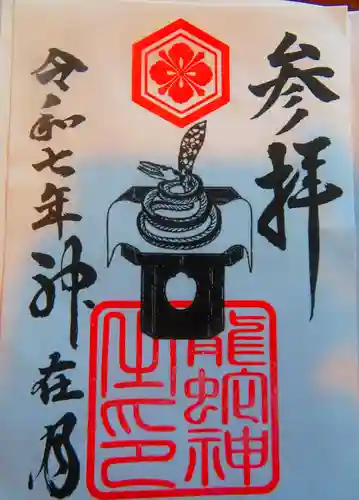 参拝
令和七年神在月
龍蛇神
之印